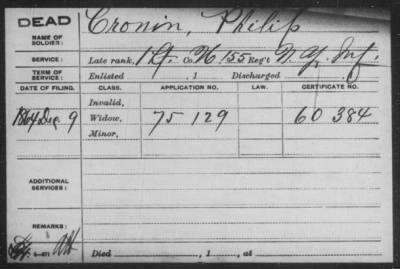 DEAD
Cronin, Philip
NAME OF SOLDIER:
SERVICE: Late rank, Co. H 155 Reg't N.Y. Inf.
TERM OF SERVICE: Enlisted , 1 Discharged
DATE OF FILING. CLASS. APPLICATION NO. LAW. CERTIFICATE NO.
Invalid,
1864 Dec. 9 Widow, 75 129 60 384
Minor,
ADDITIONAL SERVICES:
REMARKS:
Died , 1 , at